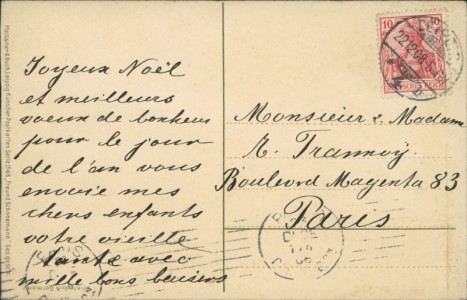 Joyeux Noël
et meilleurs
voeux de bonheur
pour le jour
de l'an vous
envoie mes
chers enfants
votre vieille
tante avec
mille bons baisers
Monsieur & Madame
R. Trannoy
Boulevard Magenta 83
Paris
10 10